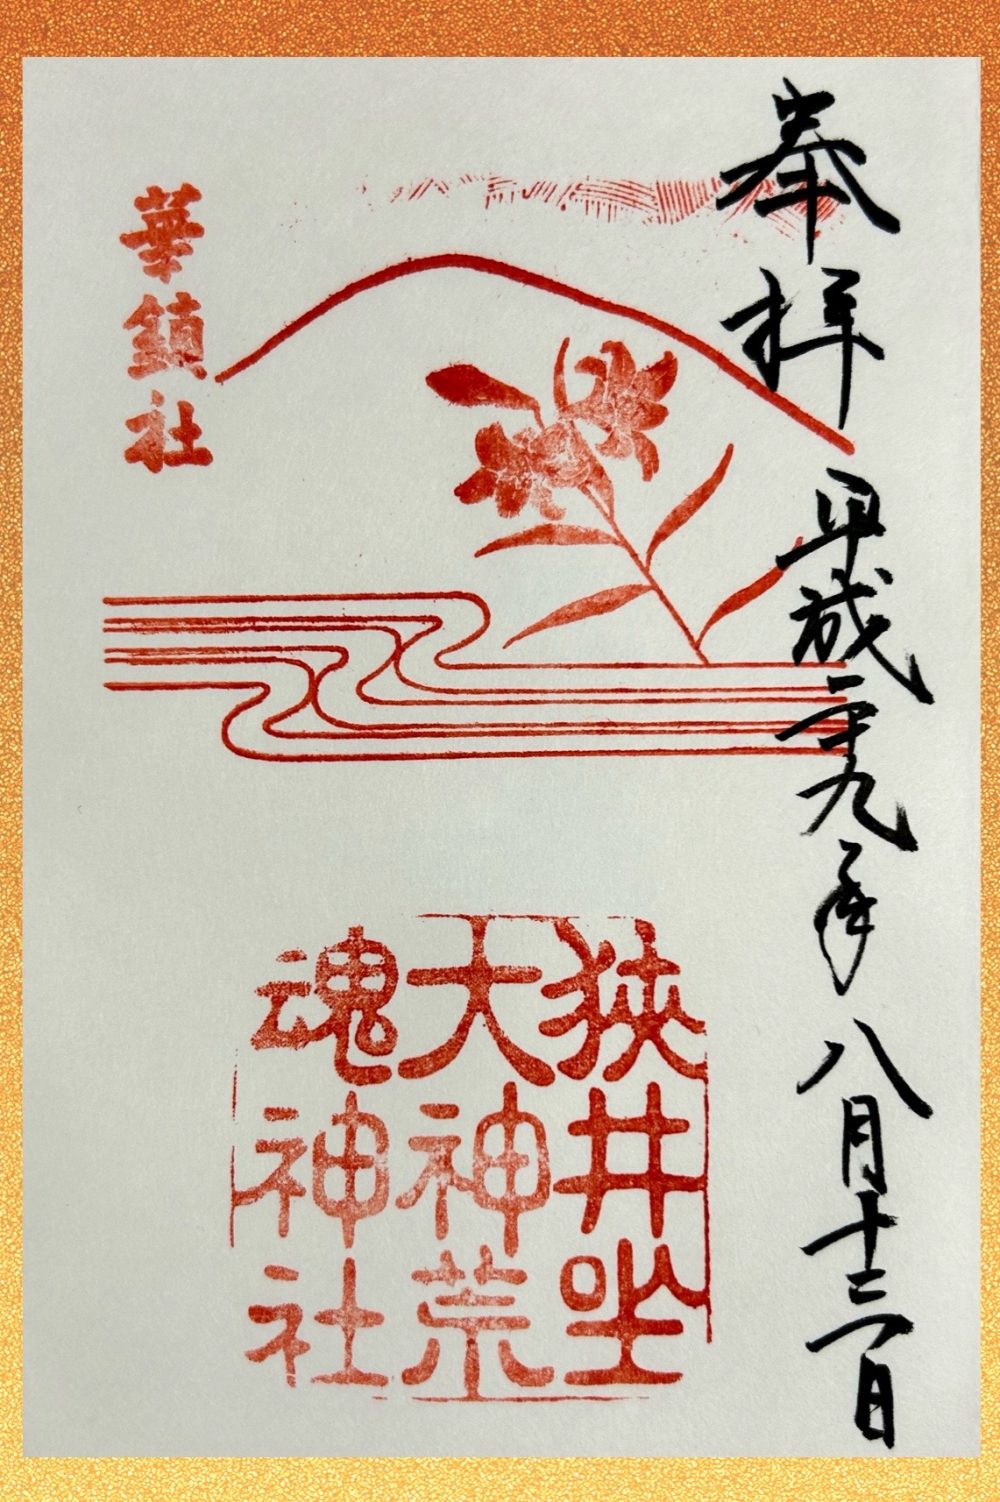 奉拝 平成二十九年八月十三日
狹井坐
大神荒
魂神社
華鎮社